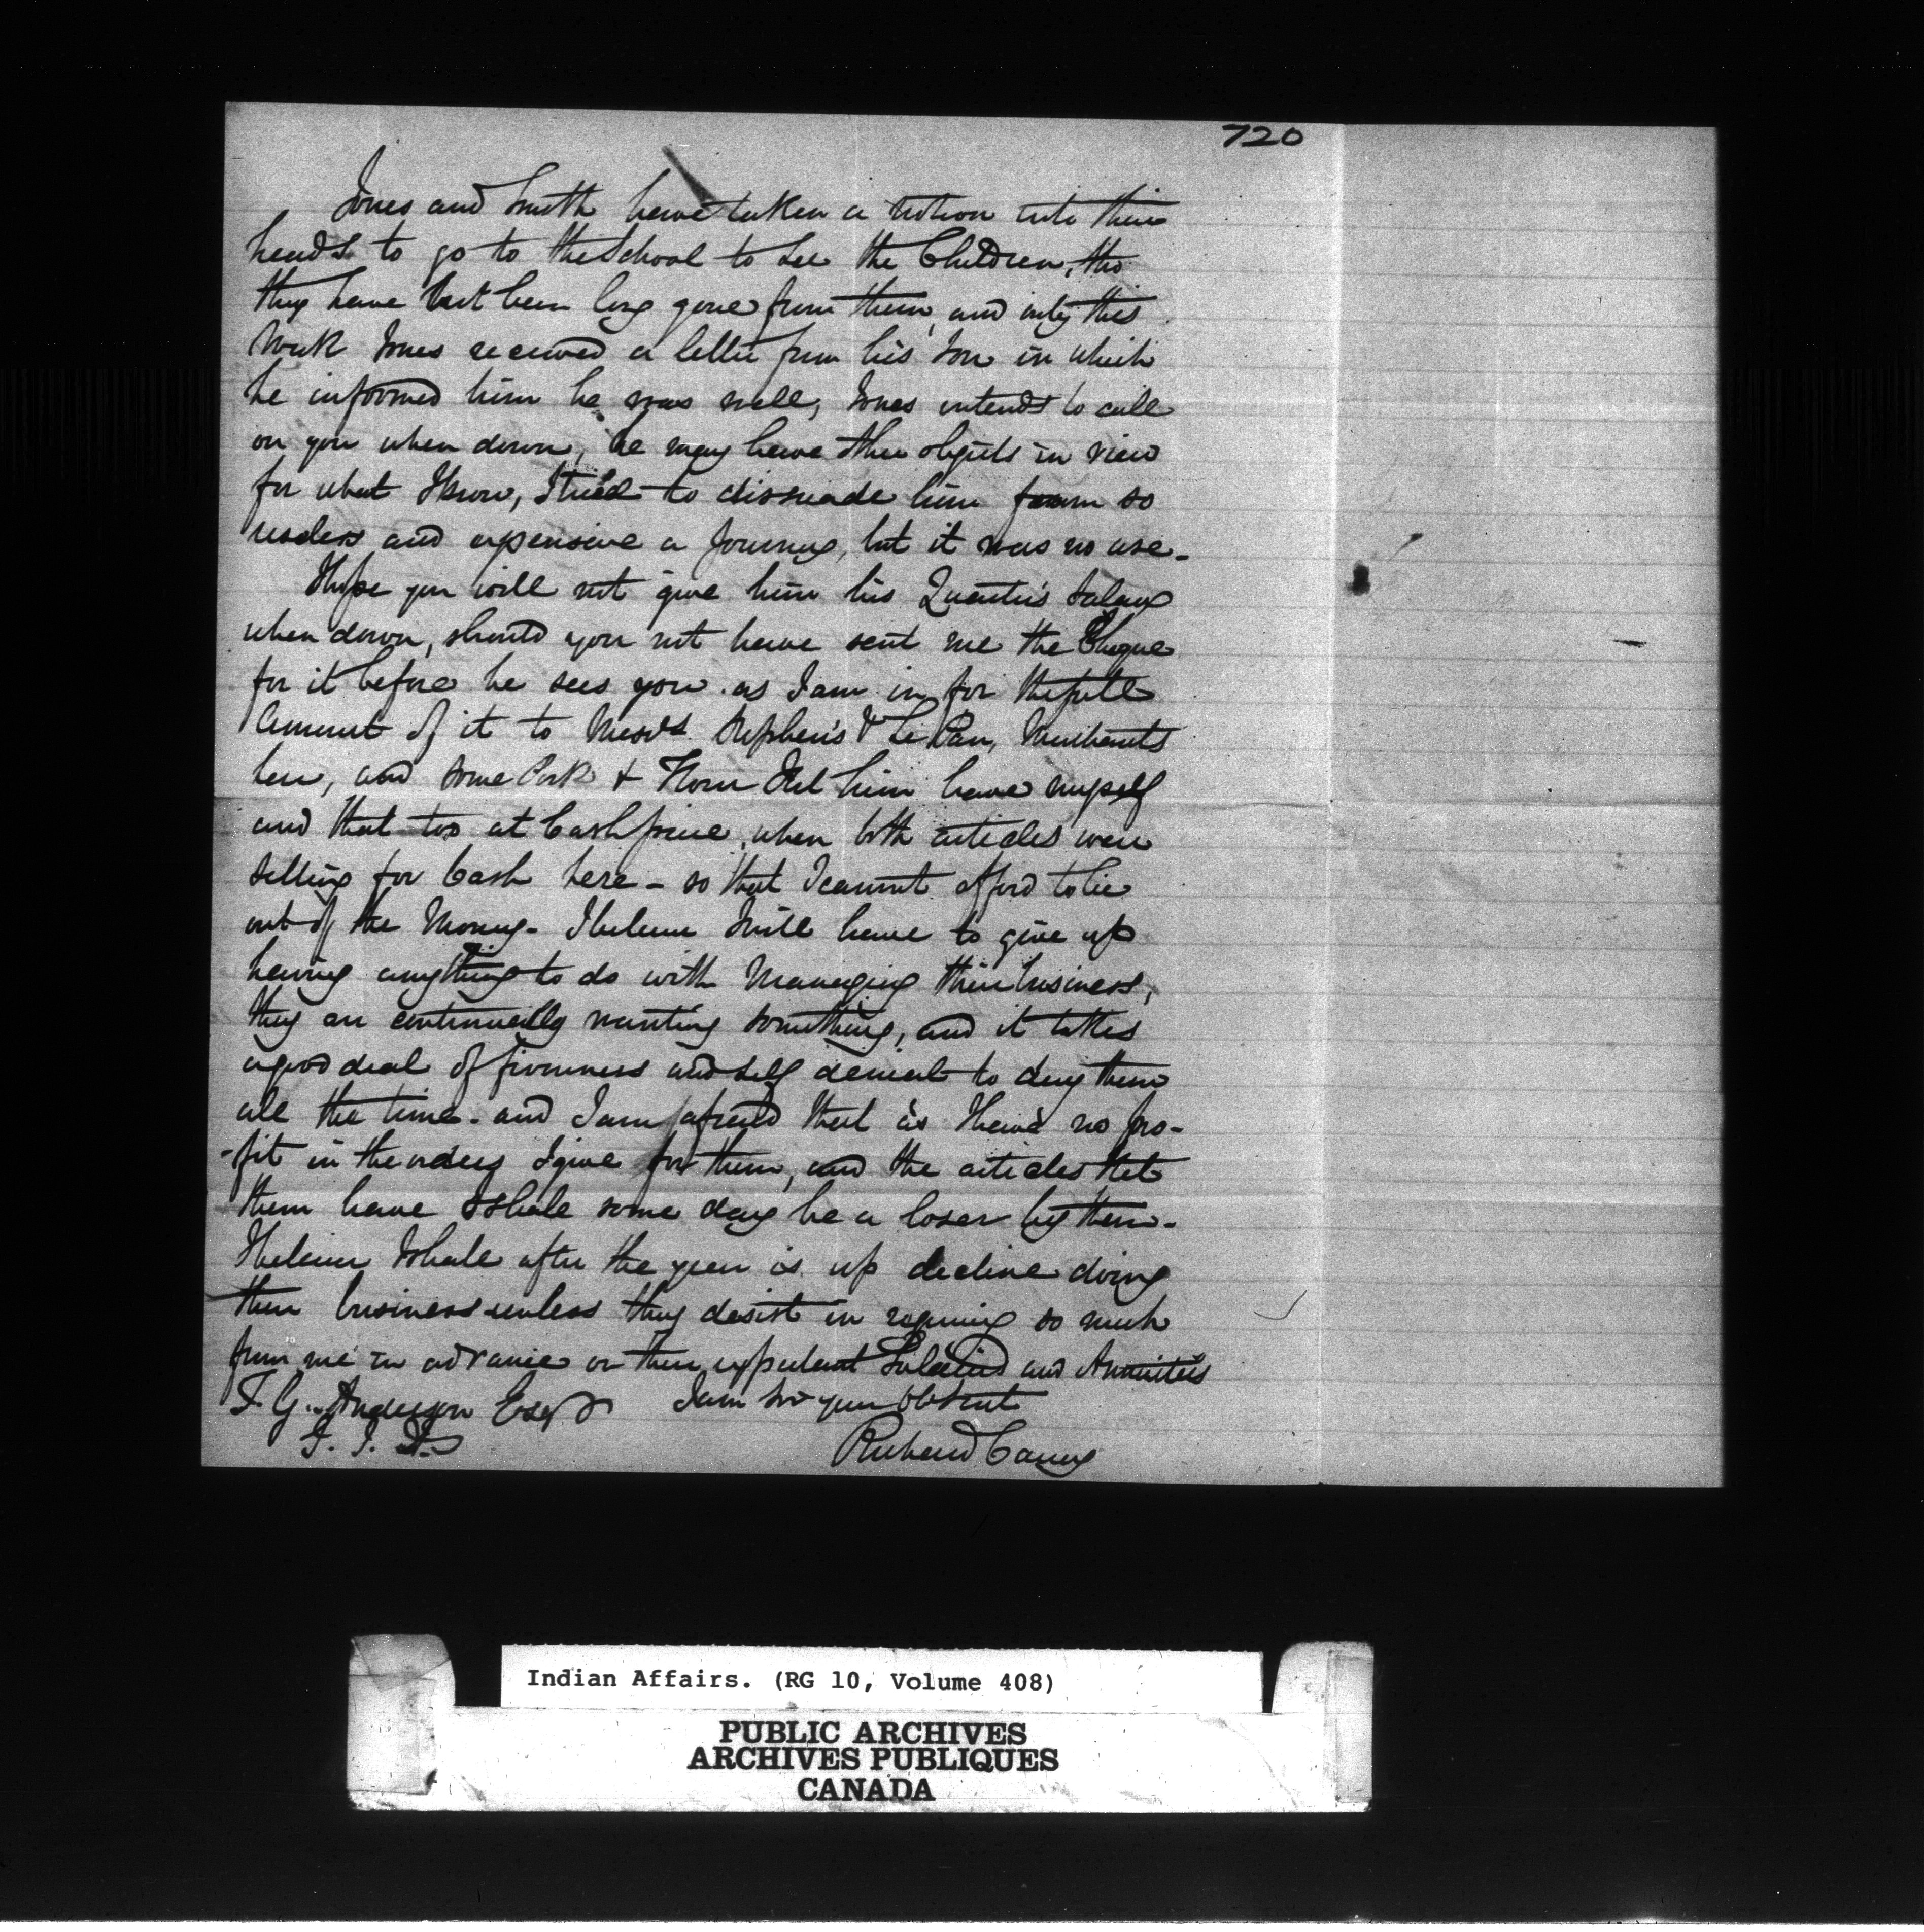 720
Jones and Smith have taken a notion into their
heads to go to the School to see the Children, tho
they have not been long gone from them, and only this
Week Jones received a letter from his Son in which
he informed him he was well, Jones intends to call
on you when down, he may have other objects in view
for what I know, I tried to dissuade him from so
useless and expensive a Journey, but it was no use -
I hope you will not give him his Quarter's Salary
when down, should you not have sent me the Cheque
for it before he sees you. as I am in for the full
Amount of it to Messrs Stephens & Le Pan, Merchants
here, and some Pork & Flour I let him have myself
and that too at Cash price, when both articles were
selling for Cash here - so that I cannot afford to lie
out of the Money - I believe I will have to give up
having anything to do with Managing their business,
they are continually wanting something, and it takes
a good deal of firmness and self denial to deny them
all the time - and I am afraid that as I have no pro-
-fit in the orders I give for them, and the articles I let
them have I shall some day be a loser by them -
I believe I shall after the year is up decline doing
their business unless they desist in requiring so much
from me in advance on their Salaries and Annuities
T. G. Anderson Esqr I am Sir your Obt Sert
Richard Carney
Indian Affairs. (RG 10, Volume 408)
PUBLIC ARCHIVES
ARCHIVES PUBLIQUES
CANADA